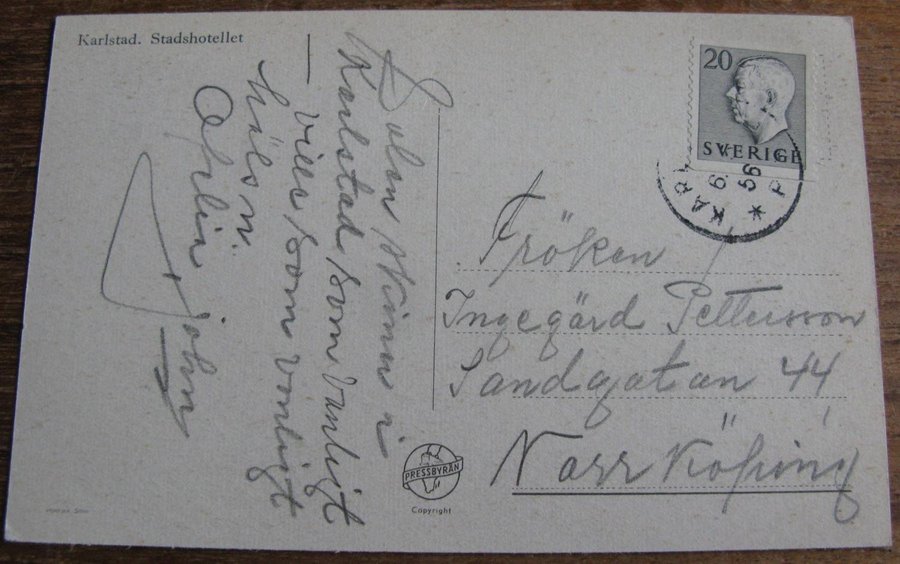 Karlstad. Stadshotellet
Solen skiner i
Karlstad som vanligt
– vill som vanligt
hälsn.
John
20
SVERIGE
KAR
6
56
Fröken
Ingegärd Pettersson
Sandgatan 44
Norrköping
PRESSBYRÅN
Copyright